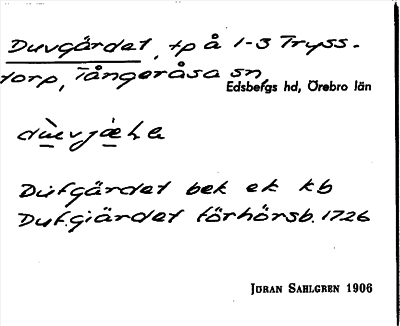 Duvgärdet, tp å 1-3 Tryss-
torp, Tångeråsa sn,
Edsbergs hd, Örebro län
Dufgärdet bek ek kb
Duf.giärdet förhörsb. 1726
Jöran Sahlgren 1906